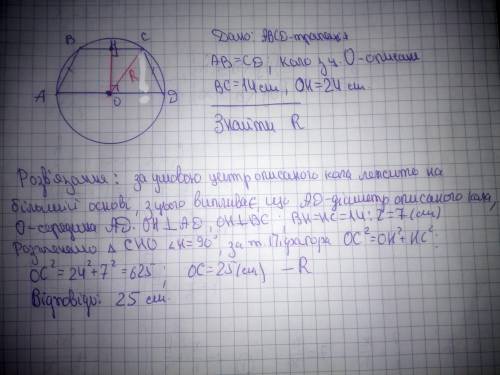 B H C
R
A O D
Дано: ABCD-трапеція
AB=CD; коло з ц. O-описане
BC=14см, OH=24 см
Знайти R
Розв'язання: за умовою центр описаного кола лежить на
більшій основі, з цього випливає що AD-діаметр описаного кола,
O-середина AD. OH⊥AD, OH⊥BC. BH=HC=14:2=7(см)
Розглянемо △CHO ∠H=90°, за т. Піфагора OC²=OH²+HC².
OC²=24²+7²=625; OC=25(см) – R
Відповідь: 25 см.